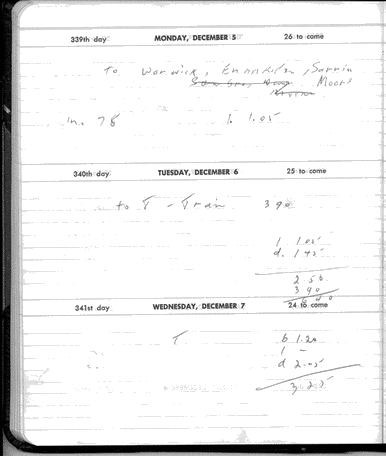 339th day MONDAY, DECEMBER 5 26 to come
to Warwick, Enniskillen, Sarnia
Moore
m. 78 l. 1.05
340th day TUESDAY, DECEMBER 6 25 to come
to T - Train 3 90
l 1.05
d. 1 45
2 50
3 90
6 40
341st day WEDNESDAY, DECEMBER 7 24 to come
T b 1.20
l -
d 2.05
3.25